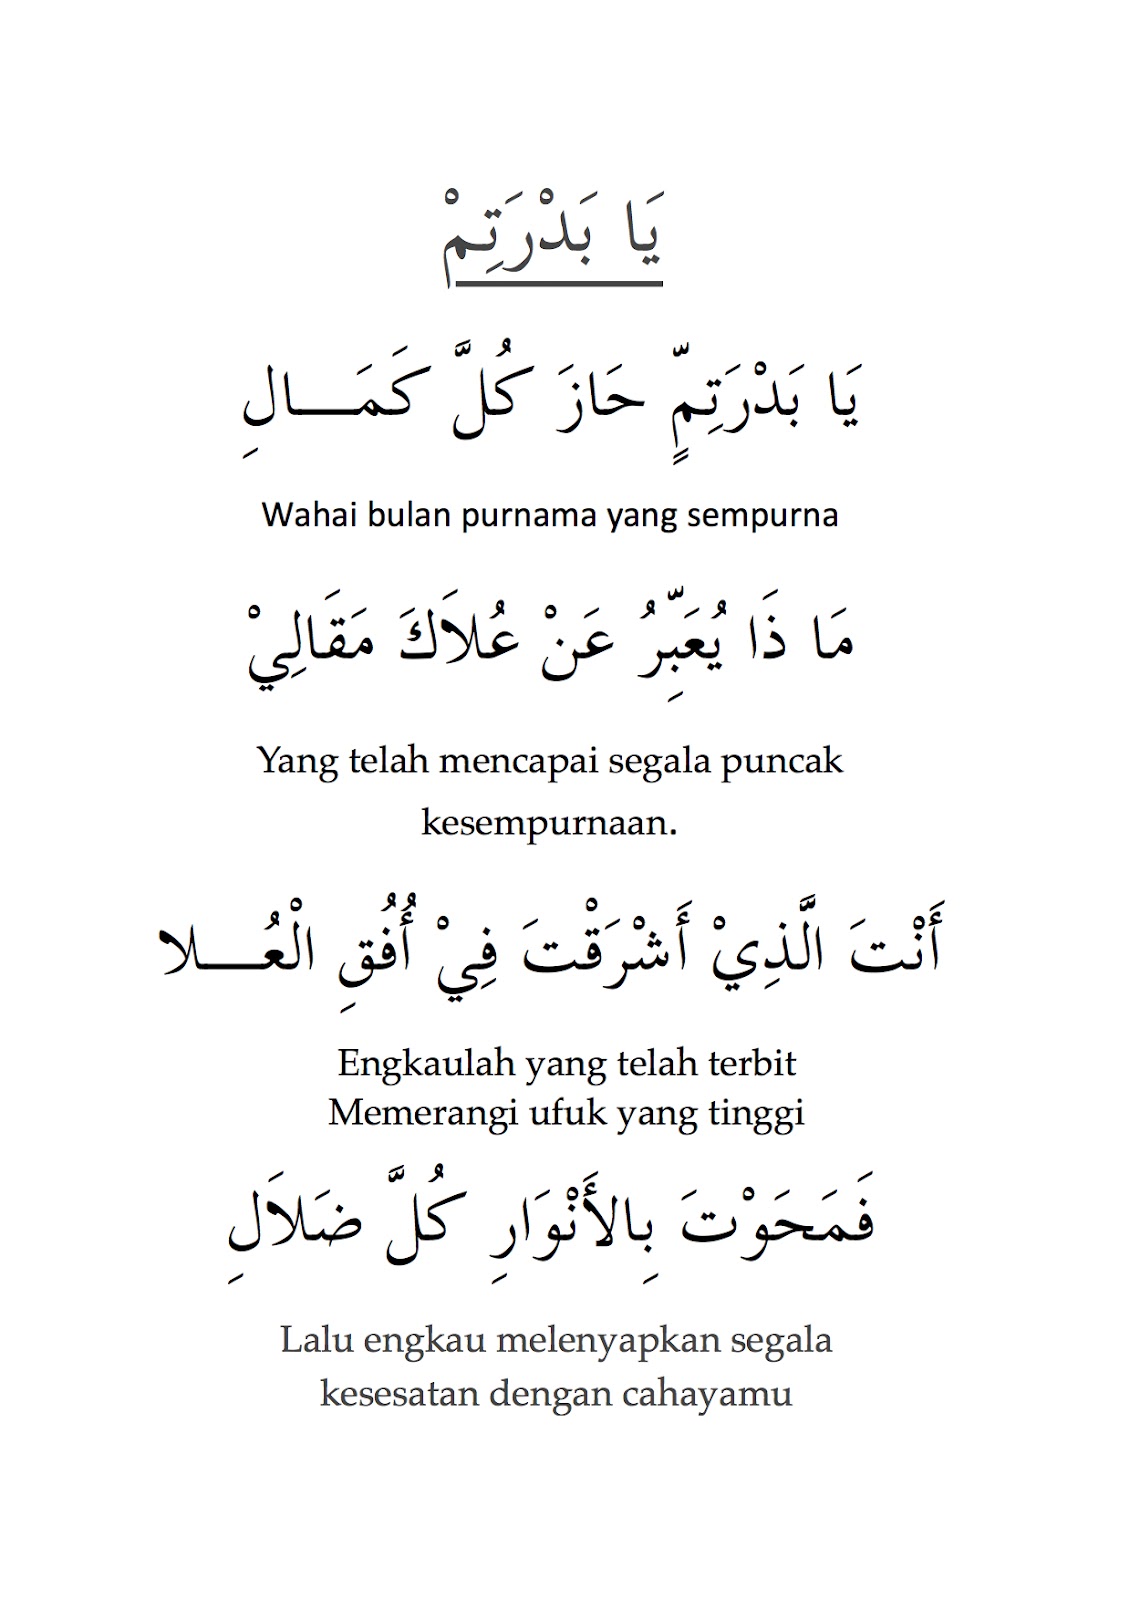 يَا بَدْرَتِمْ
يَا بَدْرَتِمٍّ حَازَ كُلَّ كَمَـــالِ
Wahai bulan purnama yang sempurna
مَا ذَا يُعَبِّرُ عَنْ عُلاَكَ مَقَالِيْ
Yang telah mencapai segala puncak
kesempurnaan.
أَنْتَ الَّذِيْ أَشْرَقْتَ فِيْ أُفُقِ الْعُـــلا
Engkaulah yang telah terbit
Memerangi ufuk yang tinggi
فَمَحَوْتَ بِالأَنْوَارِ كُلَّ ضَلاَلِ
Lalu engkau melenyapkan segala
kesesatan dengan cahayamu